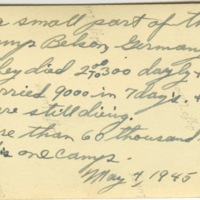 a small part of th
amp Belson, German
hey died 200 to 300 dayly &
urried 9000 in 7 days. &
are still diing.
ore than 60 thousand
is one camp.
May 7, 1945